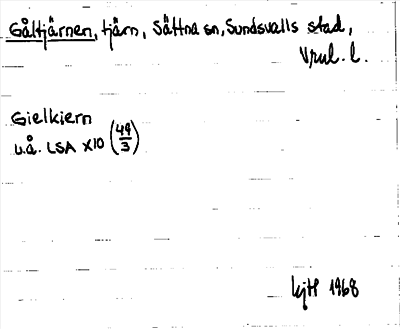 Gåltjärnen, tjärn, Sättna sn, Sundsvalls stad,
Vnul. l.
Gielkiern
u.å. LSA X10 (49/3)
1968